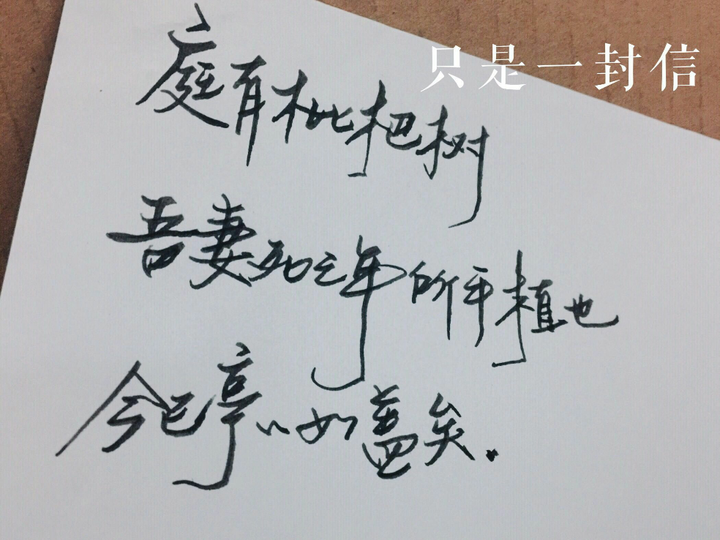 只是一封信
庭有枇杷树
吾妻死之年所手植也
今已亭〃如蓋矣.